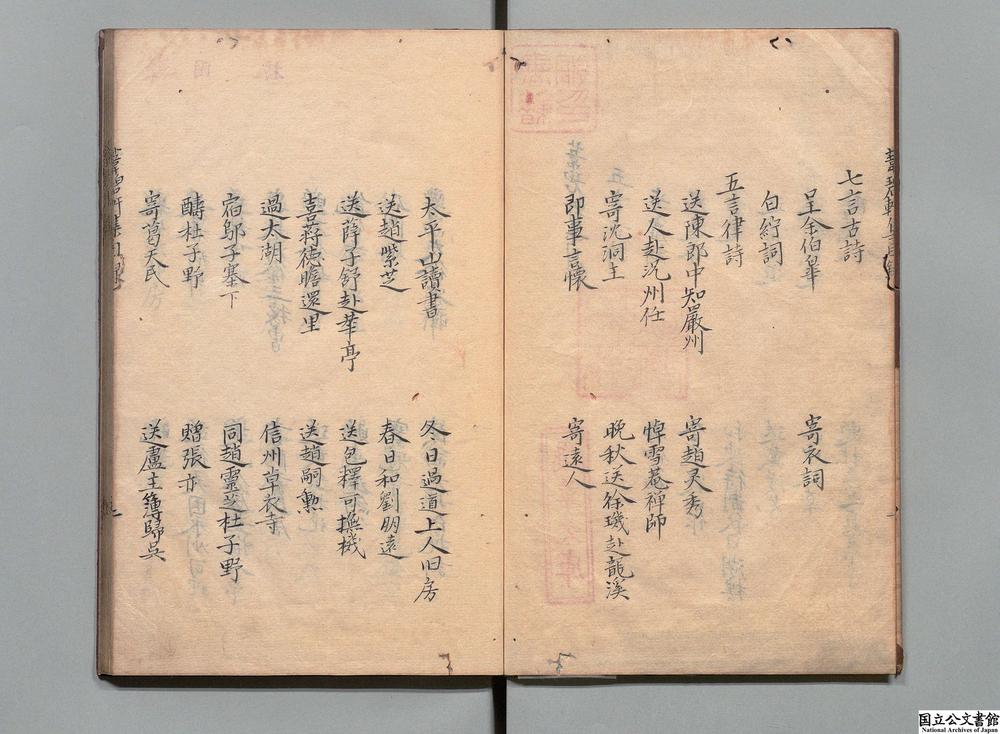 七言古詩
呈余伯皐
寄衣詞
白紵詞
五言律詩
送陳郎中知嚴州
寄趙灵秀
送人赴沅州任
悼雪菴禅師
寄沈洞主
晚秋送徐璣赴龍溪
即事言懷
寄遠人
太平山讀書
冬日過道上人旧房
送趙紫芝
春日和劉明遠
送薛子舒赴華亭
送包釋可撫機
喜蔣德瞻還里
送趙嗣勲
過太湖
信州草衣寺
宿鄔子寨下
同趙靈芝杜子野
酬杜子野
贈張亦
寄葛天民
送盧主簿歸吳
国立公文書館
National Archives of Japan